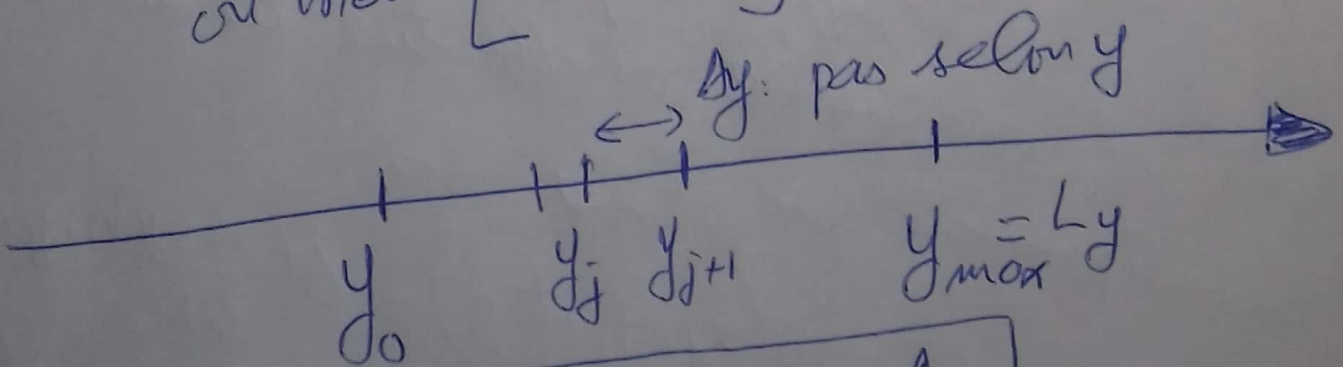 ou
Δy: pas selon y
y₀ yⱼ yⱼ₊₁ y_max = Ly